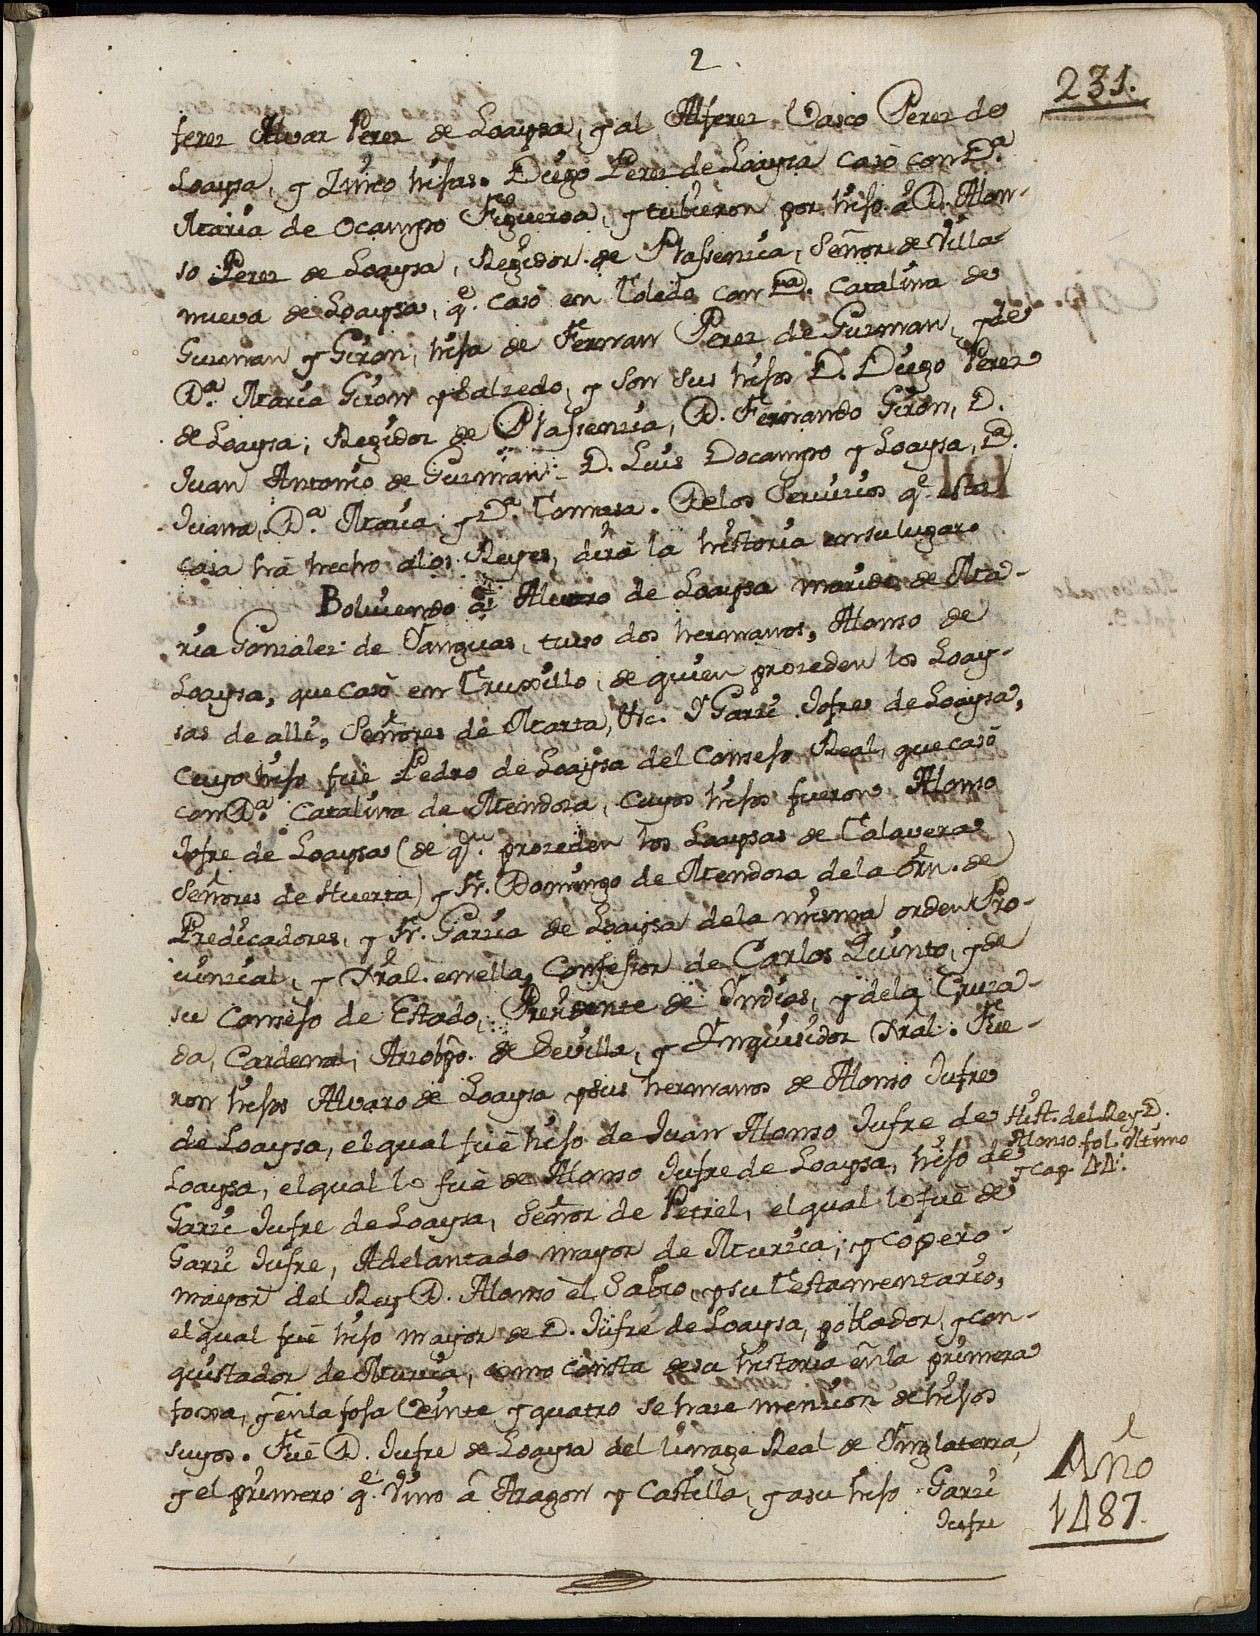 2
231.
ferez Alvar Perez de Loaysa, y al Alferez Vasco Perez de
Loaysa, y Zinco hijas. Diego Perez de Loaysa casò con D.ª
Maria de Ocampo Figueroa, y tubieron por hijo à D. Alon-
so Perez de Loaysa, Regidor de Plasenzia, Señor de Villa-
nueva de Loaysa, q.e casò en Toledo con D.ª Catalina de
Guzman y Giron, hija de Fernan Perez de Guzman, y de
D.ª Maria Giron y Salzedo, y son sus hijos D. Diego Perez
de Loaysa, Regidor de Plasenzia, D. Fernando Giron, D.
Juan Antonio de Guzman, D. Luis Docampo y Loaysa, D.ª
Juana, D.ª Maria, y D.ª Tomasa. De los Servicios q.e esta
casa hà hecho alos Reyes, dirà la historia ensulugar.
Bolviendo à Alvaro de Loaysa marido de Ma-
ria Gonzalez de Yanguas, tuvo dos hermanos, Alonso de
Loaysa, que casò en Truxillo, de quien prozeden los Loay-
sas de alli, Señores de Marta, &c. Y Garzi Jofre de Loaysa,
cuyo hijo fuè Pedro de Loaysa del Consejo Real, que casò
con D.ª Catalina de Mendoza, cuyos hijos fueron Alonso
Jofre de Loaysa (de q.n prozeden los Loaysas de Talavera
Señores de Huerta) y Fr. Domingo de Mendoza dela Orn. de
Predicadores, y Fr. Garzia de Loaysa dela misma orden Pro-
vinzial, y Gral. enella, Confesor de Carlos Quinto, y de
su Consejo de Estado, Presidente de Yndias, y dela Cruza-
da, Cardenal, Arzobpo. de Sevilla, y Ynquisidor Gral. Fue-
ron hijos Alvaro de Loaysa y sus hermanos de Alonso Jufre
de Loaysa, elqual fuè hijo de Juan Alonso Jufre de
Loaysa, elqual lo fuè de Alonso Jufre de Loaysa, hijo de
Garzi Jufre de Loaysa, Señor de Petrel, elqual lo fuè de
Garzi Jufre, Adelantado mayor de Murzia, y copero
mayor del Rey D. Alonso el Sabio, y su Testamentario,
elqual fuè hijo mayor de D. Jufre de Loaysa, poblador, y con-
quistador de Murzia, como consta desu historia enla primera
foxa, y enla foja Veinte y quatro se haze menzion de hijos
suyos. Fuè D. Jufre de Loaysa del linage Real de Ynglaterra,
y el primero q.e vino à Aragon y Castilla, y asu hijo Garzi
Jufre
Hist. del Rey D.
Alonso fol. ultimo
y cap. 44.
Año
1487.